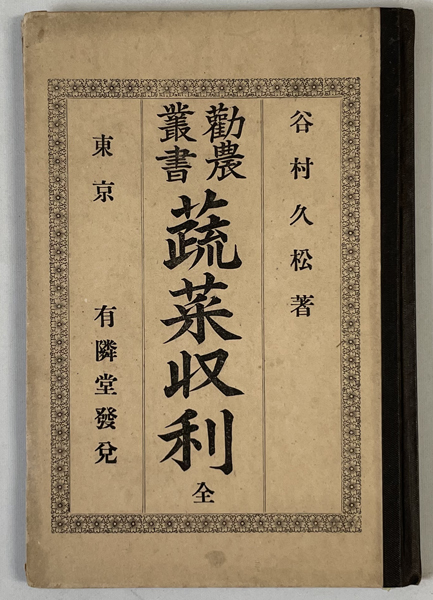 谷村久松著
勧農叢書
蔬菜収利 全
東京 有隣堂發兌